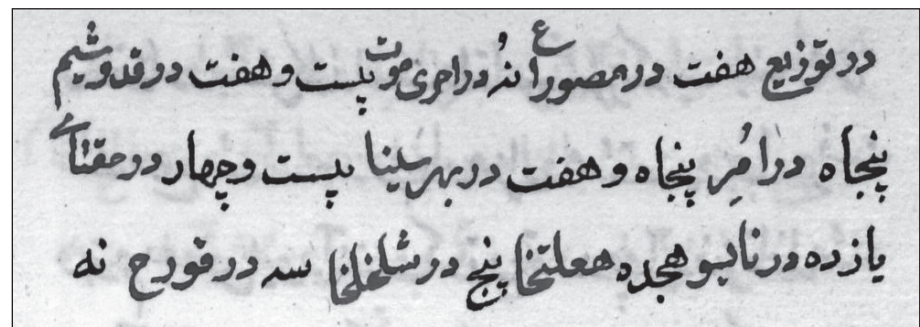 در توزیع هفت در مصوراع نُه در احری موت بیست و هفت در قدوشیم
پنجاه در امُر پنجاه و هفت در بهر سینا بیست و چهار در
یازده در ناسو هجده هعلتخا پنج در شلخلخا سه در قورح نه